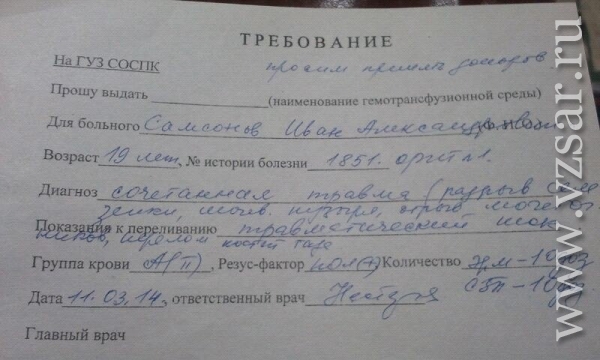 ТРЕБОВАНИЕ
На ГУЗ СОСПК просим принять доноров
Прошу выдать (наименование гемотрансфузионной среды)
Для больного Самсонов Иван Александрович
Возраст 19 лет, № истории болезни 1851.
Диагноз сочетанная травма (разрыв селе
зенки, мочев. пузыря, отрыв мочеточ
Показания к переливанию травматический шок
ников, перелом костей таза
Группа крови А(II), Резус-фактор пол(+) Количество эр.м-10доз
СЗП-10д
Дата 11.03.14, ответственный врач
Главный врач
www.vzsar.ru